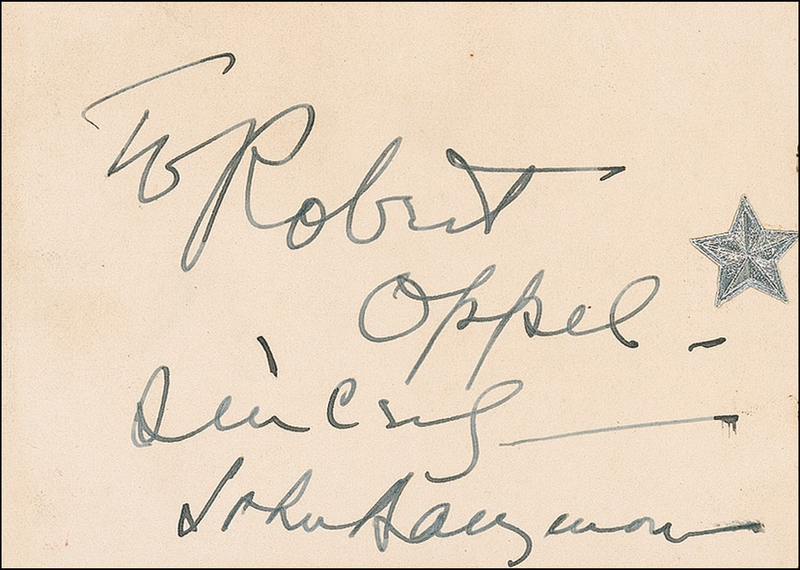 To Robert
Oppel -
Sincerely
John Barrymore